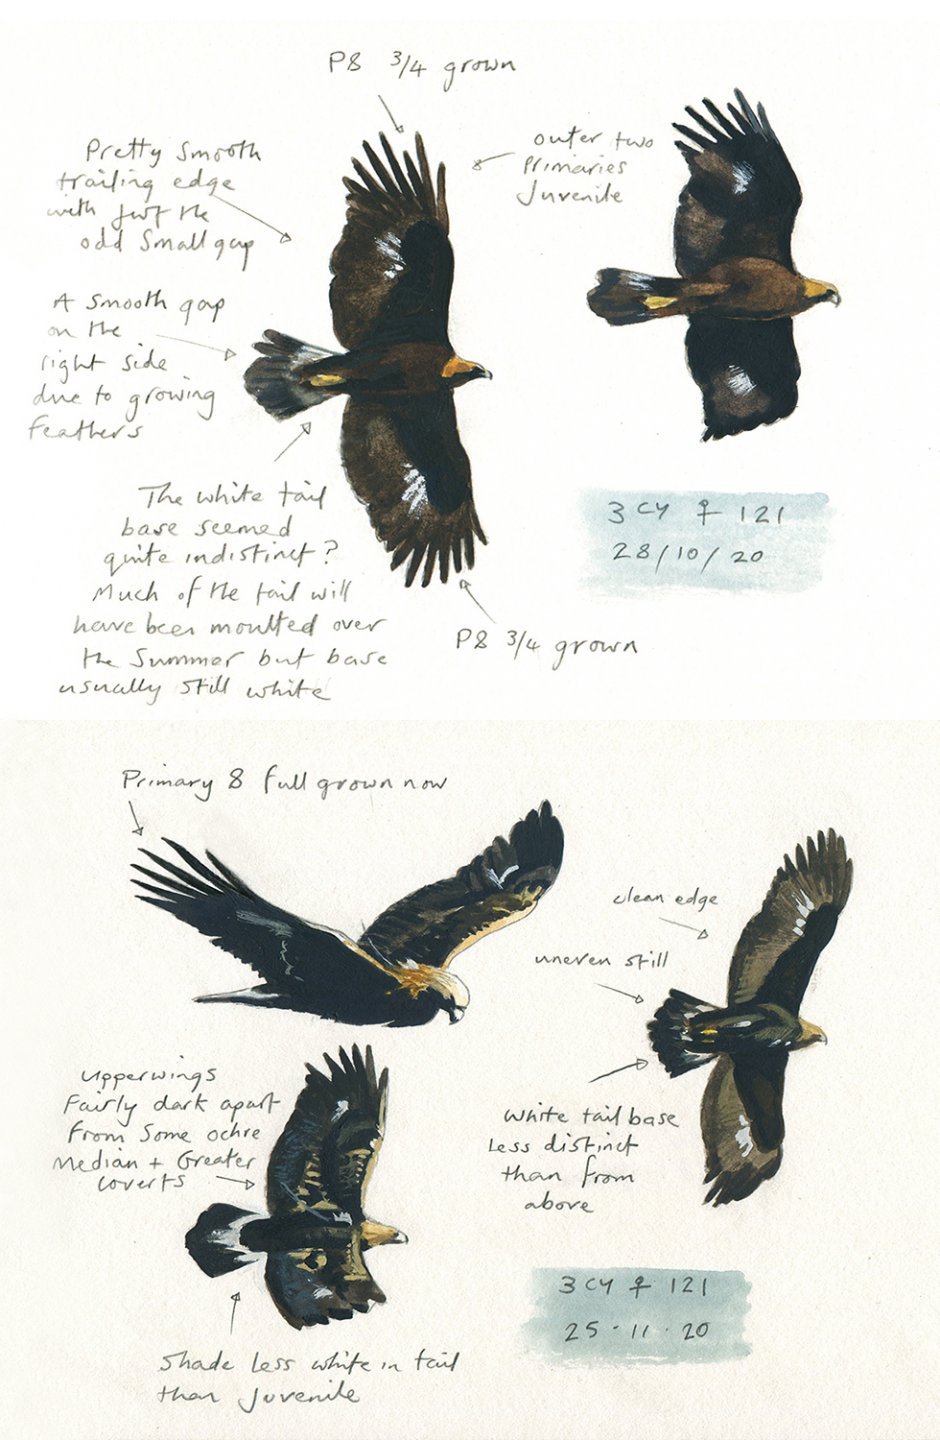 P8 3/4 grown
Pretty smooth
trailing edge
with just the
odd small gap
outer two
Primaries
Juvenile
A smooth gap
on the
right side
due to growing
feathers
The white tail
base seemed
quite indistinct?
Much of the tail will
have been moulted over
the summer but base
usually still white
3 CY ♀ 121
28/10/20
P8 3/4 grown
Primary 8 full grown now
clean edge
uneven still
Upperwings
Fairly dark apart
from some ochre
Median + Greater
coverts
White tail base
Less distinct
than from
above
3 CY ♀ 121
25·11·20
Shade less white in tail
than Juvenile